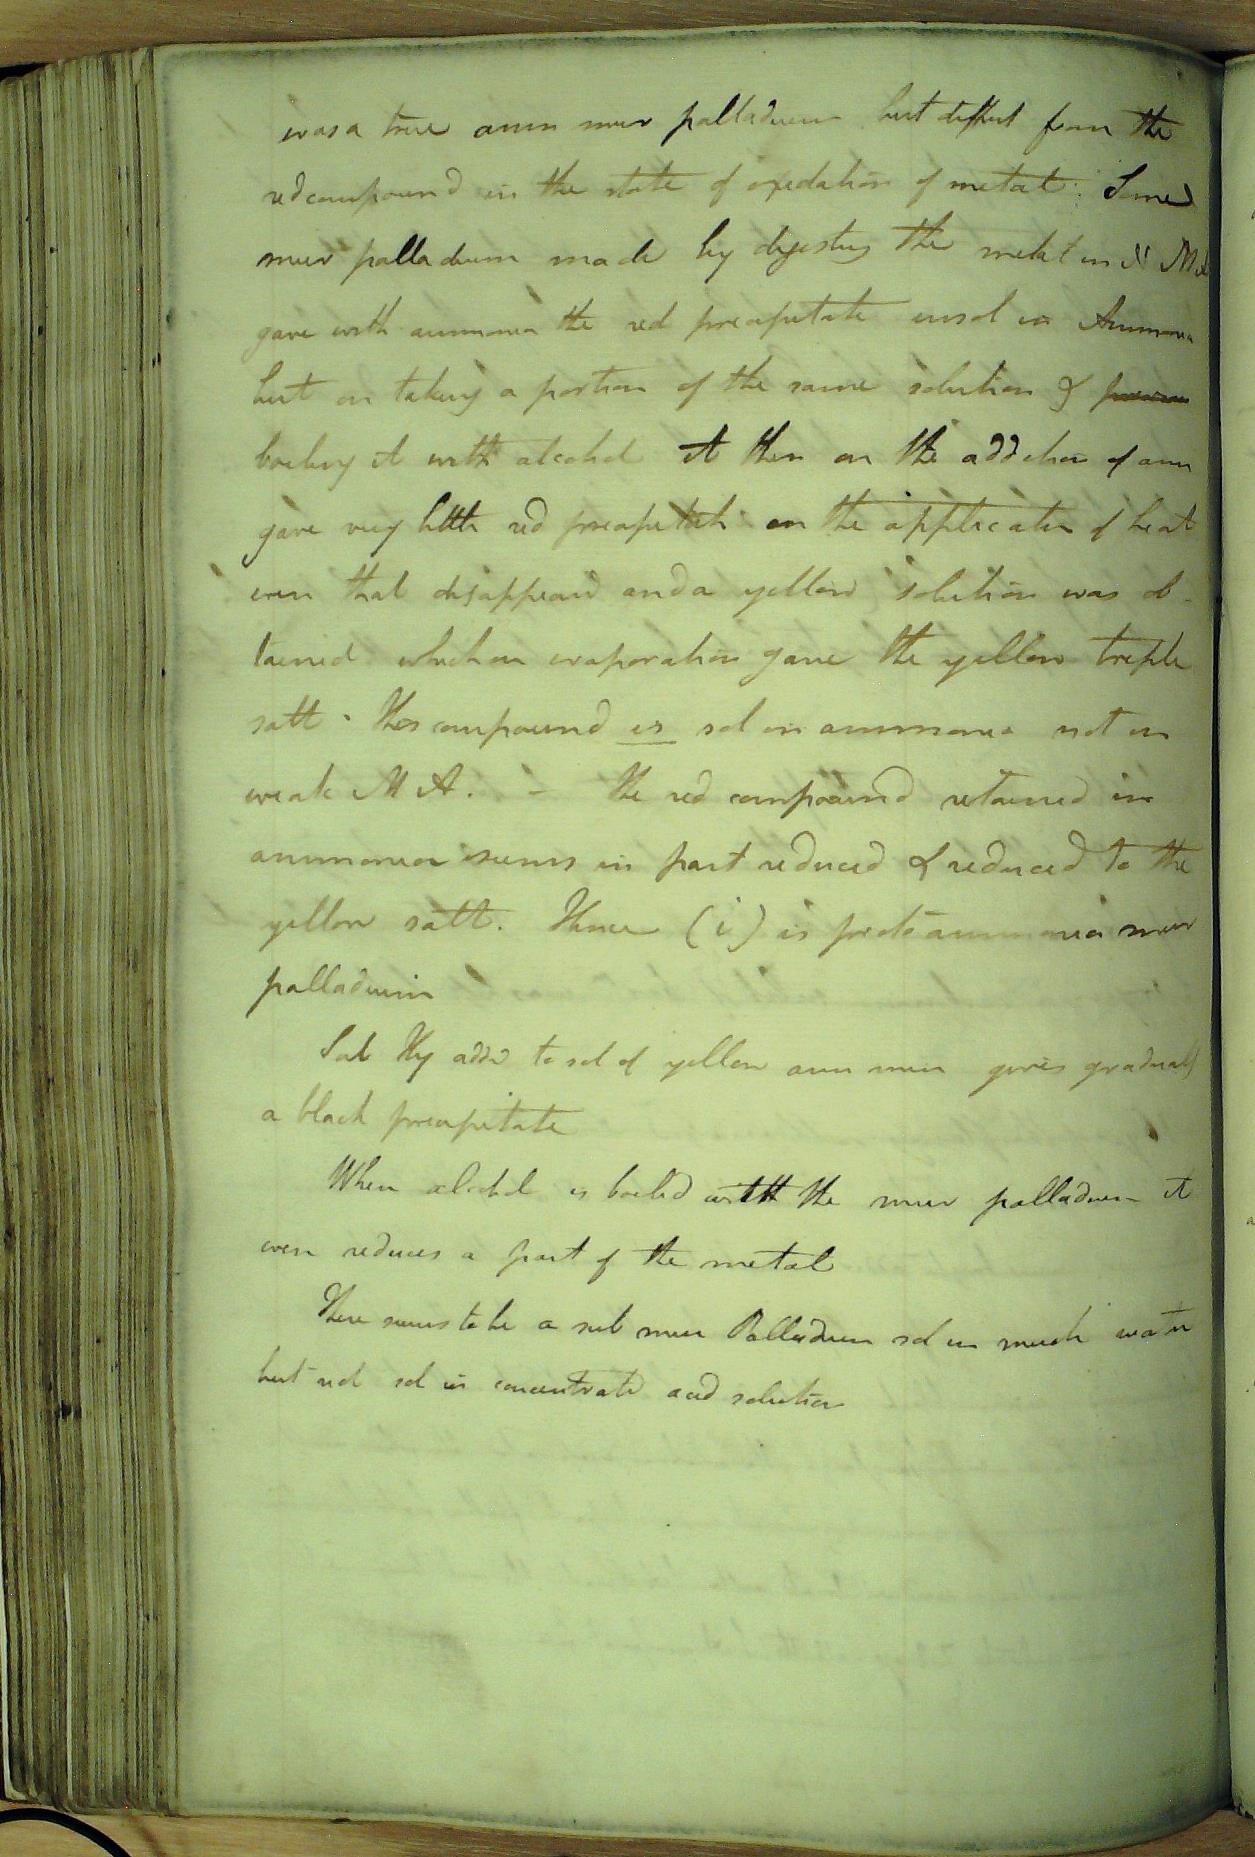 was a true amm mur palladium but diffent from the
red compound in the state of oxidation of metal. Some
mur palladium made by digesting the metal in N M A
gave with ammonia the red precipitate insol in Ammonia
but on taking a portion of the same solution &
boiling it with alcohol it then on the addition of amm
gave very little red precipitate on the application of heat
even that disappeard and a yellow solution was ob-
tained which on evaporation gave the yellow triple
salt. This compound is sol in ammonia not in
weak M A. - The red compound retained in
ammonia seems in part reduced & reduced to the
yellow salt. Hence (i) is proto ammonia mur
palladium
Sul Hy added to sol of yellow amm mur gives gradually
a black precipitate
When alcohol is boiled with the mur palladium it
even reduces a part of the metal
There seems to be a sub mur Palladium sol in much water
but not sol in concentrate acid solution